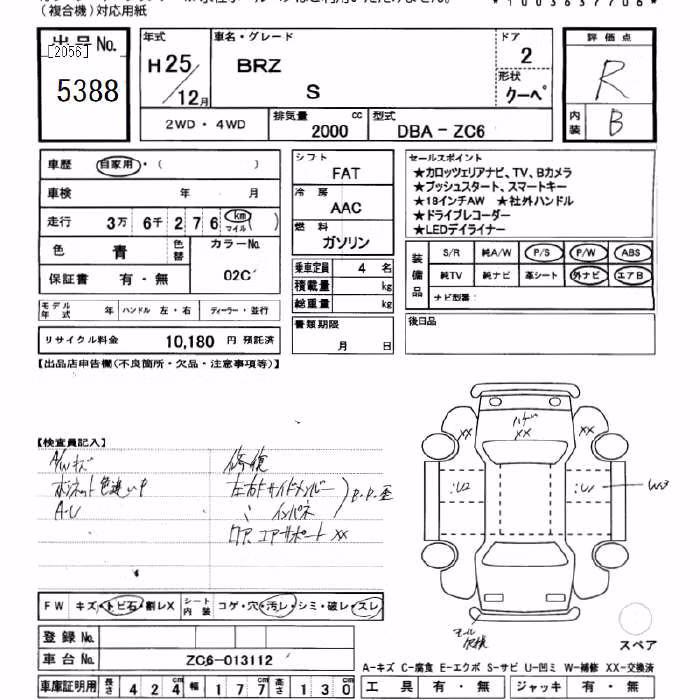 (複合機)対応用紙
*1003637706*
出品No.
[2056]
5388
年式
H25/12月
車名・グレード
BRZ
S
ドア
2
形状
クーペ
評価点
R
内装
B
2WD・4WD
排気量
2000 cc
型式
DBA-ZC6
車歴 自家用・( )
車検 年 月
走行 3万 6千 2 7 6 km マイル
色 青 色替 カラーNo. 02C
保証書 有・無
シフト
FAT
冷房
AAC
燃料
ガソリン
乗車定員 4 名
積載量 kg
総重量 kg
セールスポイント
★カロッツェリアナビ、TV、Bカメラ
★プッシュスタート、スマートキー
★18インチAW ★社外ハンドル
★ドライブレコーダー
★LEDデイライナー
装備品
S/R 純A/W P/S P/W ABS
純TV 純ナビ 革シート 外ナビ エアB
ナビ型番:
モデル年式 年 ハンドル 左・右 ディーラー・並行
リサイクル料金 10,180 円 預託済
書類期限
月 日
後日品
【出品店申告欄(不良箇所・欠品・注意事項等)】
【検査員記入】
A/Wキズ
ボンネット色違い
A-U
修復
左右Fサイドメンバー
〃 インパネ
エアサポート XX
XX XX XX
U2 U1 W3
FW キズ・トビ石・割レX シート内装 コゲ・穴・汚レ・シミ・破レ・スレ
登録No.
車台No. ZC6-013112
スペア
A-キズ C-腐食 E-エクボ S-サビ U-凹ミ W-補修 XX-交換済
車庫証明用 長さ 424cm 幅 177cm 高さ 130cm
工具 有・無 ジャッキ 有・無